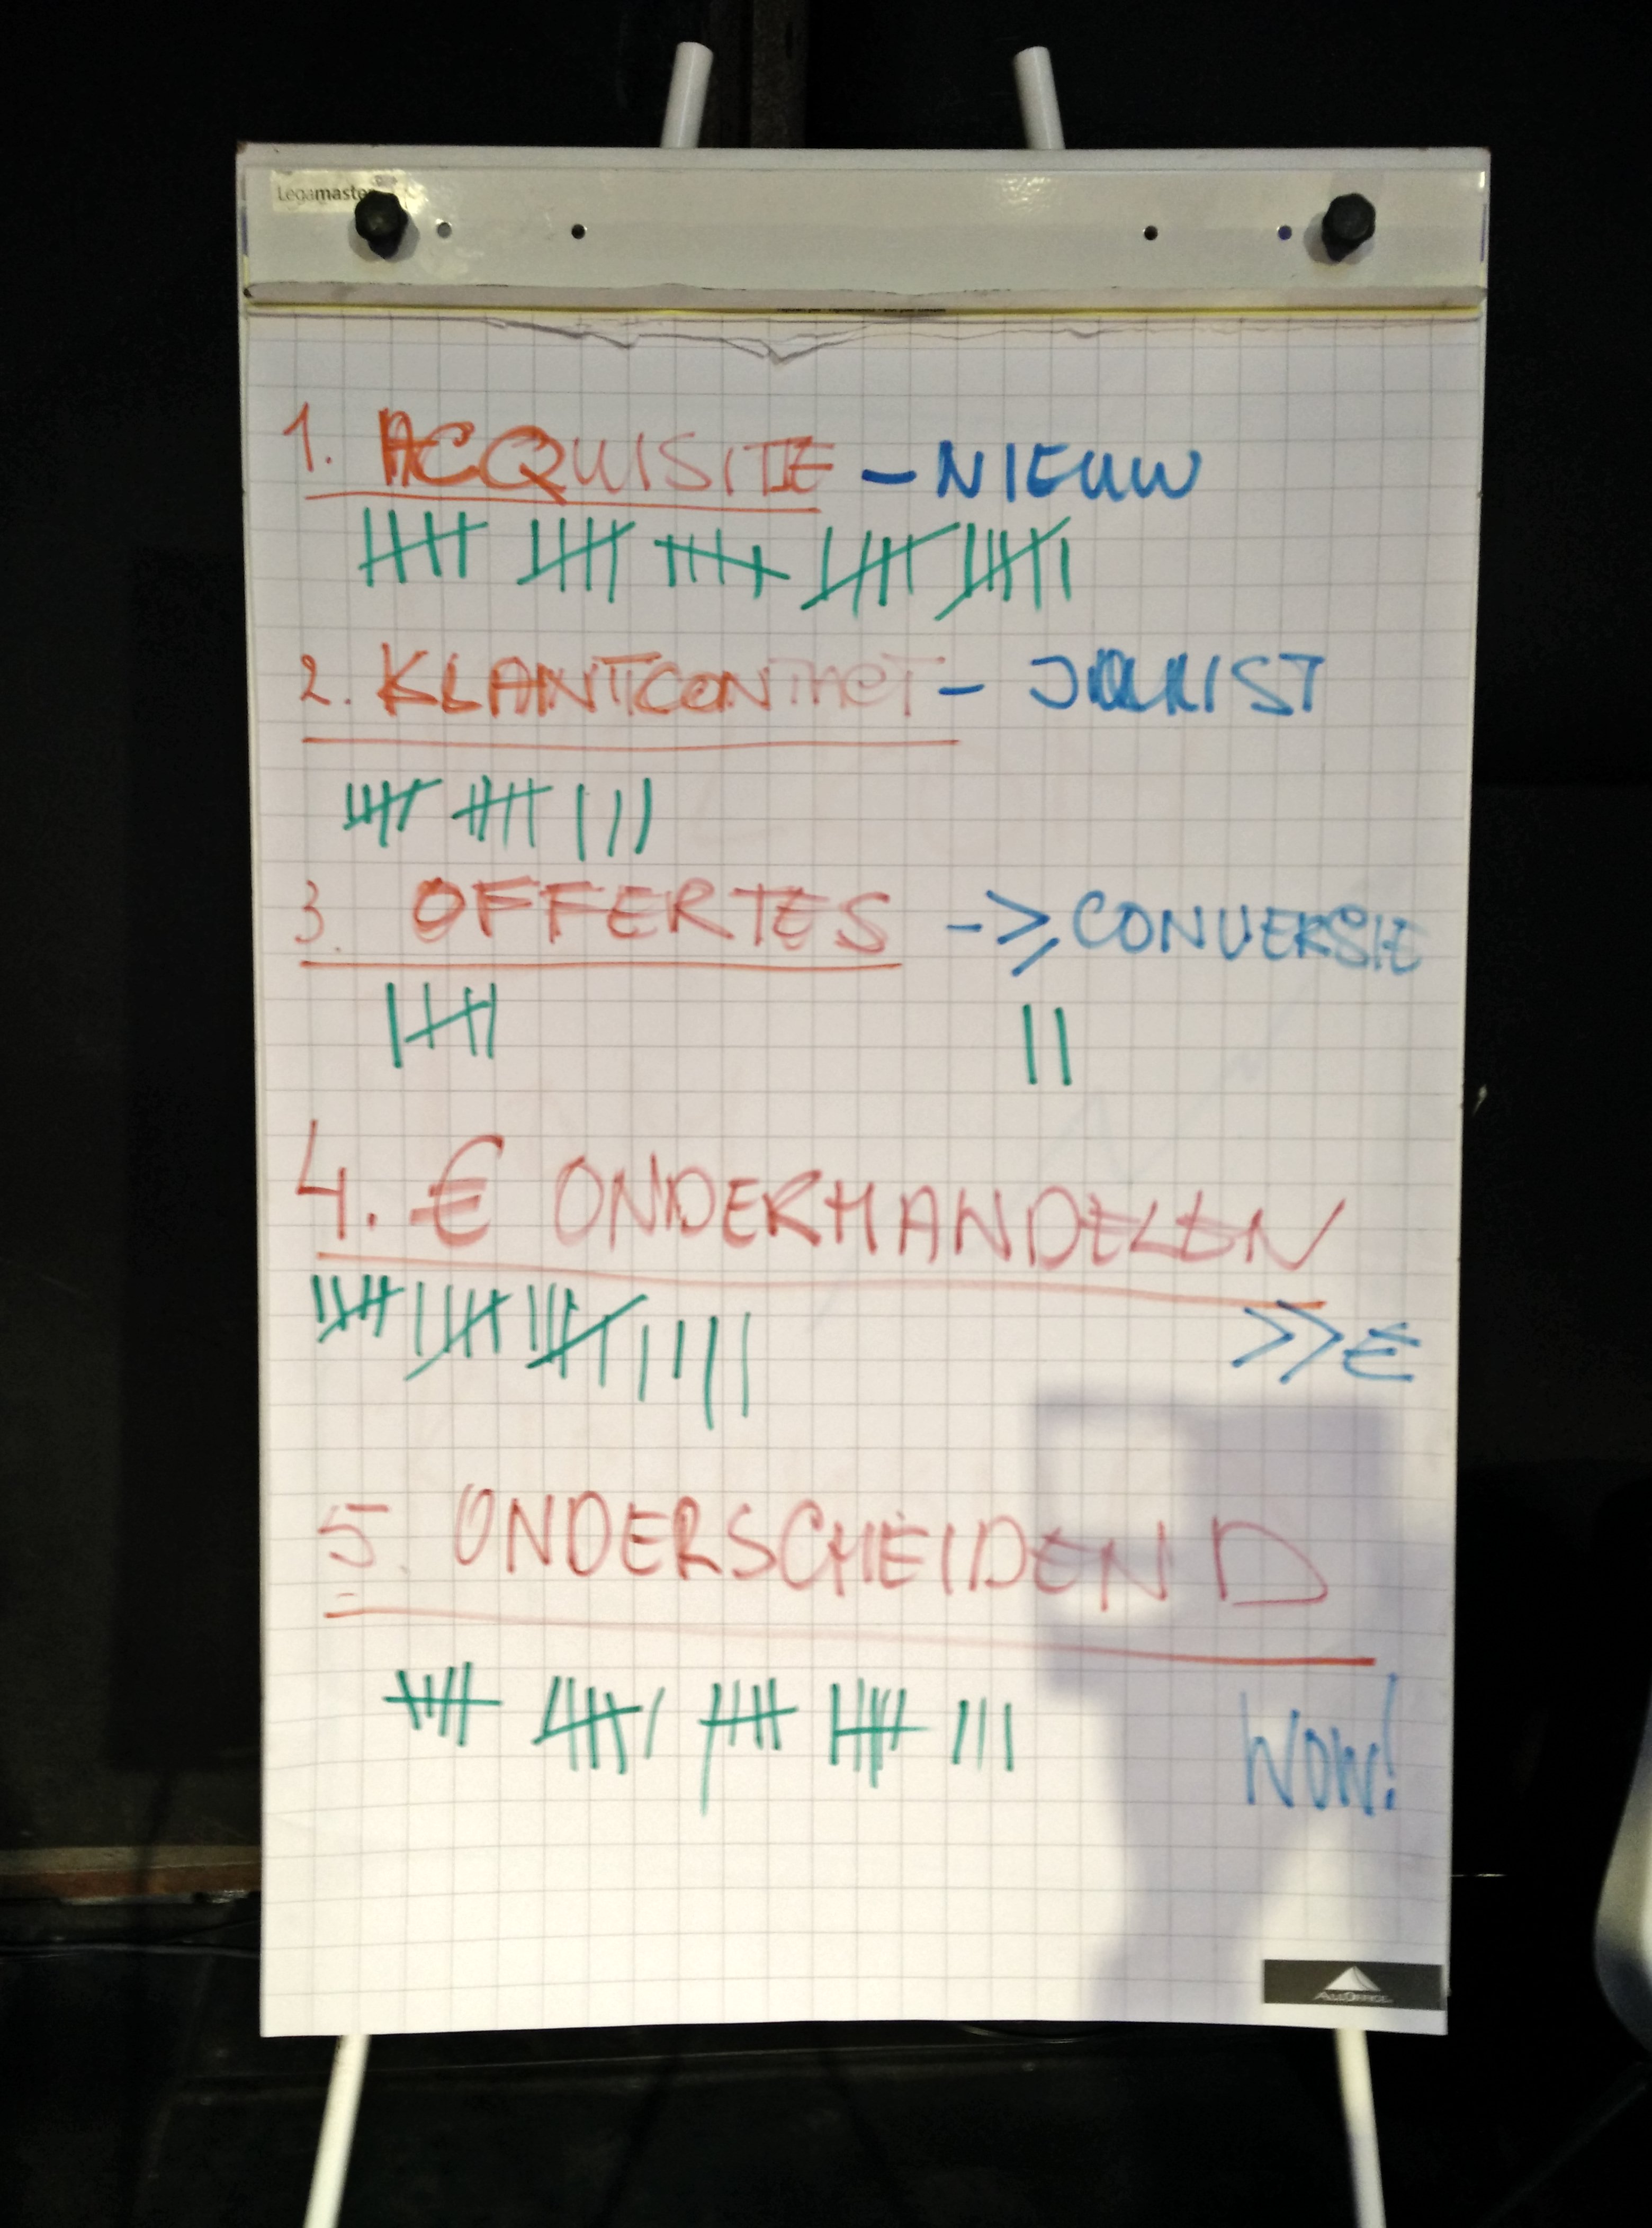 Legamaster
1. ACQUISITIE - NIEUW
2. KLANTCONTACT - JUIST
3. OFFERTES -> CONVERSIE
4. € ONDERHANDELEN
>> €
5. ONDERSCHEIDEND
WOW!
ALLOFFICE